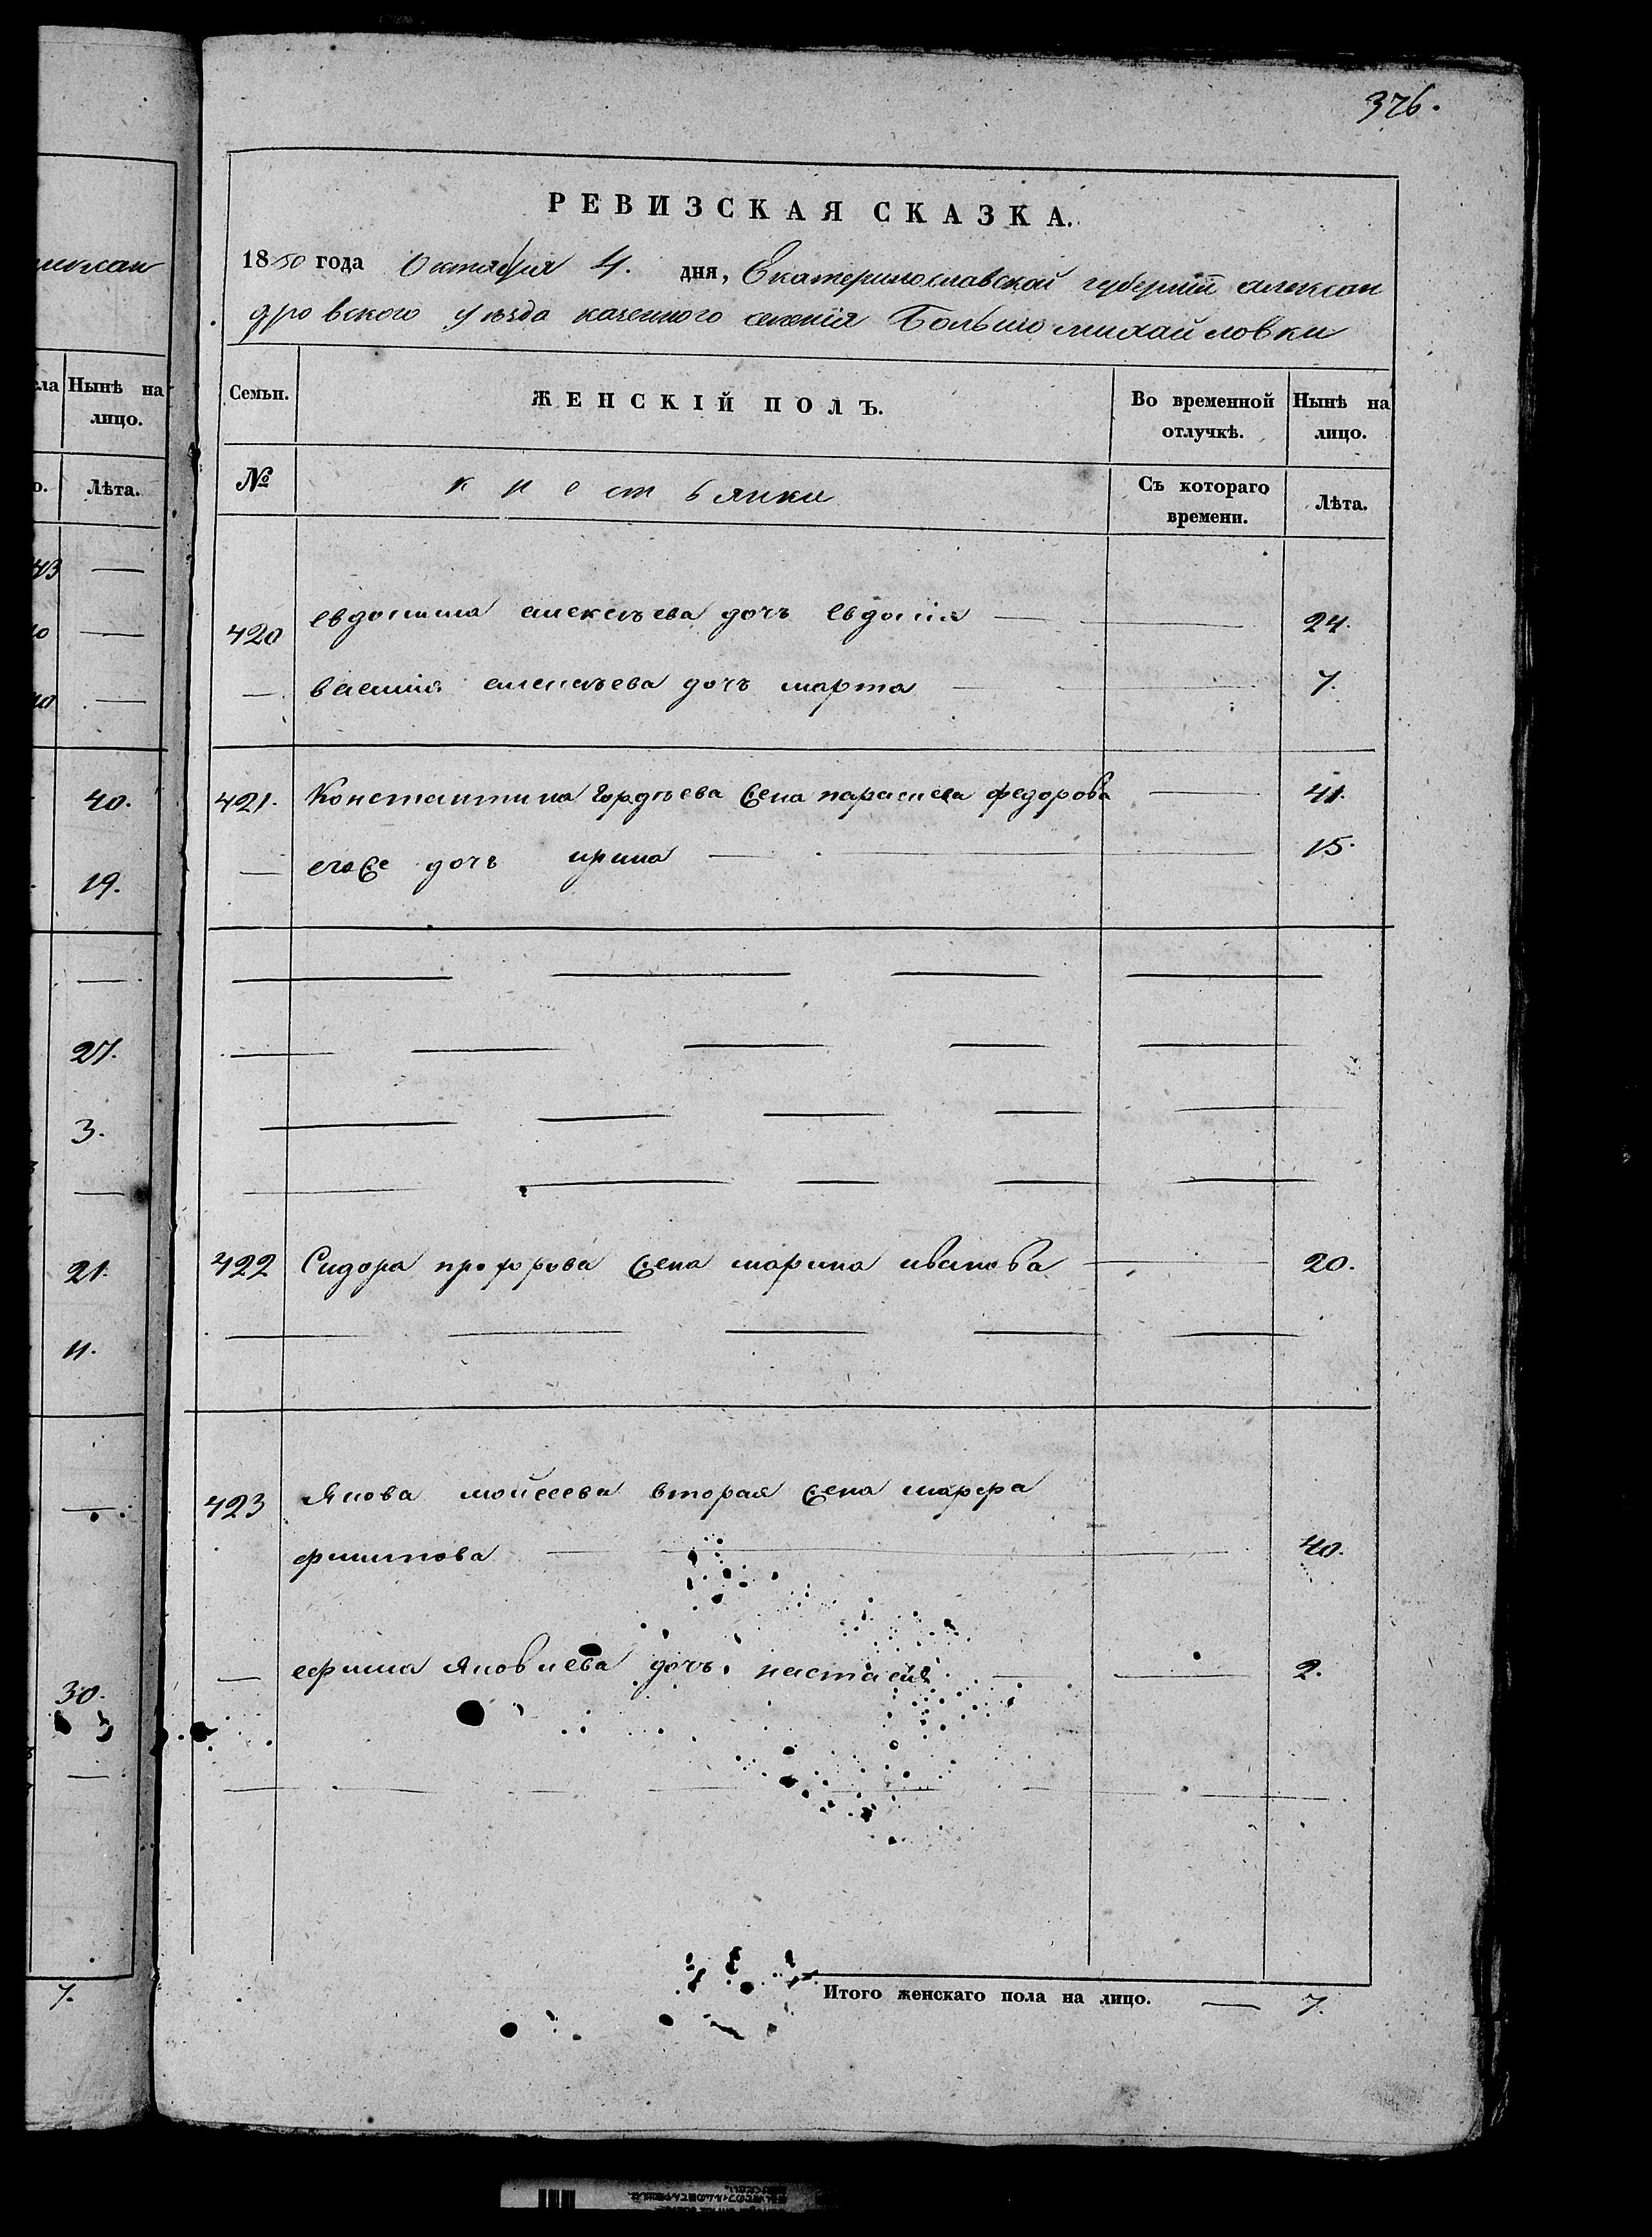 376.
РЕВИЗСКАЯ СКАЗКА.
1850 года Октября 4. дня, Екатеринославской губернии алексан
дровского уѣзда казенного селенія Большомихайловки
Семьи.
ЖЕНСКІЙ ПОЛЪ.
Во временной отлучкѣ.
Нынѣ на лицо.
№
крестьянки
Съ котораго времени.
Лѣта.
420 евдокима алексѣева дочь Евдокія — — 24.
— василия алексѣева дочь марта — — 7.
421. Константина Гордѣева жена параскева федорова — 41.
— егоже дочь ирина — — 15.
422 Сидора прохорова жена марина иванова — 20.
423 Якова мойсеева вторая жена марфа
филипова — — 40.
— ефима Яковлева дочь настасия — — 2.
Итого женскаго пола на лицо. — 7.
алексан
ла
Нынѣ на
лицо.
о.
Лѣта.
40.
19.
27.
3.
21.
11.
30.
7.